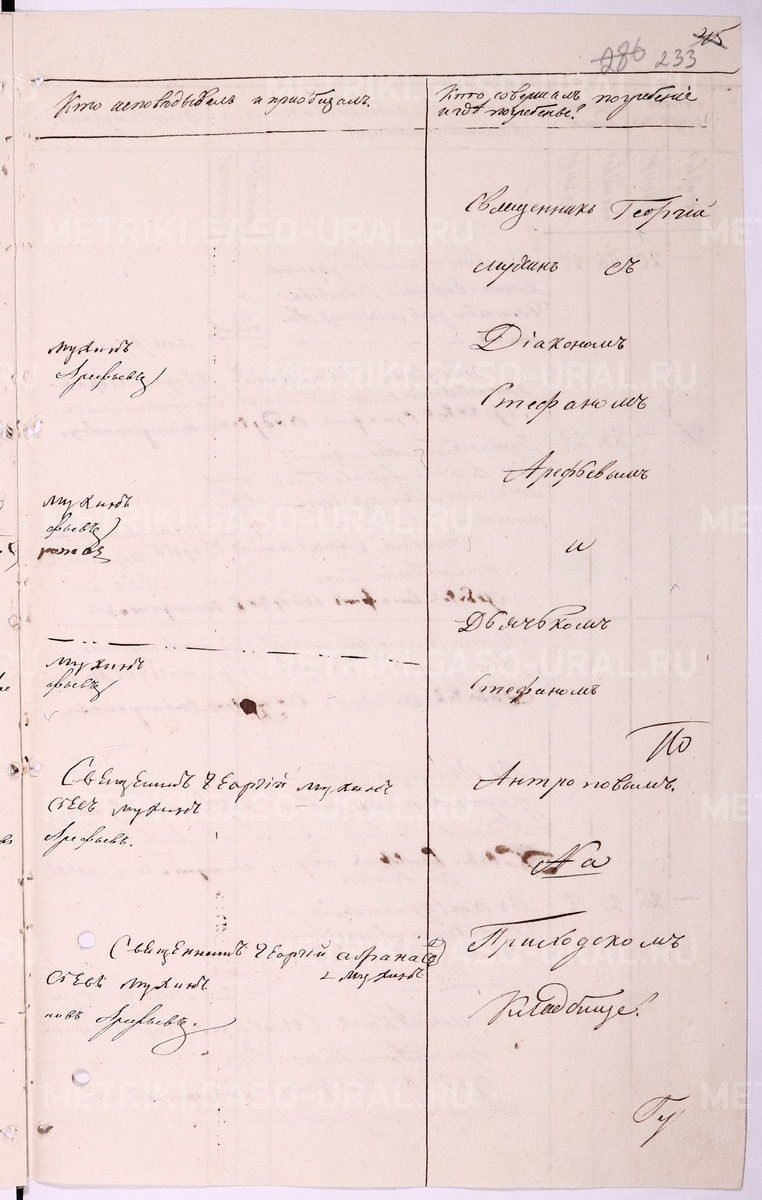 286 233 245
Кто исповѣдывалъ и приобщалъ.
Кто совершалъ погребеніе
и гдѣ погребены?
Священникъ Георгій
Мухинъ съ
Діакономъ
Стефаномъ
Арефьевымъ
и
Дьячькомъ
Стефаномъ
Антроповымъ.
На
Приходскомъ
Кладбище.
Мухинъ
Арефьевъ
Мухинъ
фьевъ
Мухинъ
фьевъ
Священникъ Георгій Мухинъ
Мухинъ
Арефьевъ.
Священникъ Георгій
Мухинъ
Мухинъ
новъ Арефьевъ.
METRIKI.GASO-URAL.RU